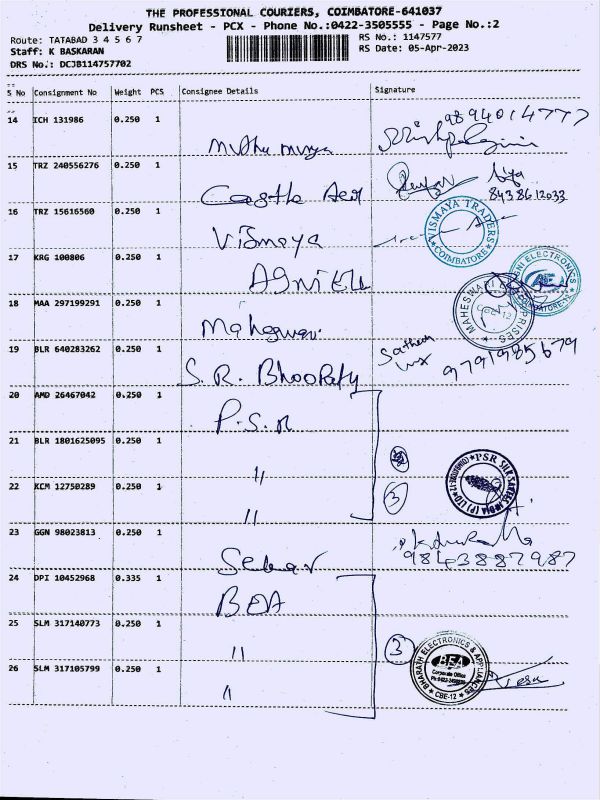 THE PROFESSIONAL COURIERS, COIMBATORE-641037
Delivery Runsheet - PCX - Phone No.:0422-3505555 - Page No.:2
Route: TATABAD 3 4 5 6 7
RS No.: 1147577
Staff: K BASKARAN
RS Date: 05-Apr-2023
DRS No.: DCJB114757702
S No Consignment No Weight PCS Consignee Details Signature
14 ICH 131986 0.250 1
9894014777
15 TRZ 240556276 0.250 1
Castle
8438612033
16 TRZ 15616560 0.250 1
Vismaya
VISMAYA TRADERS
COIMBATORE
17 KRG 100806 0.250 1
AGNI ELE
AGNI ELECTRONICS
COIMBATORE-12
18 MAA 297199291 0.250 1
MAHESWARI ENTERPRISES
CBE-12
19 BLR 640283262 0.250 1
S.R.
9791985679
20 AMD 26467042 0.250 1
P.S.R
21 BLR 1801625095 0.250 1
"
22 KCM 12750289 0.250 1
"
3
PSR SILK SAREES INDIA (P) LTD
23 GGN 98023813 0.250 1
Sekar
9843887987
24 DPI 10452968 0.335 1
BEA
25 SLM 317140773 0.250 1
"
3
BHARATH ELECTRONICS & APPLIANCES
BEA
Corporate Office
CBE-12
26 SLM 317105799 0.250 1
"